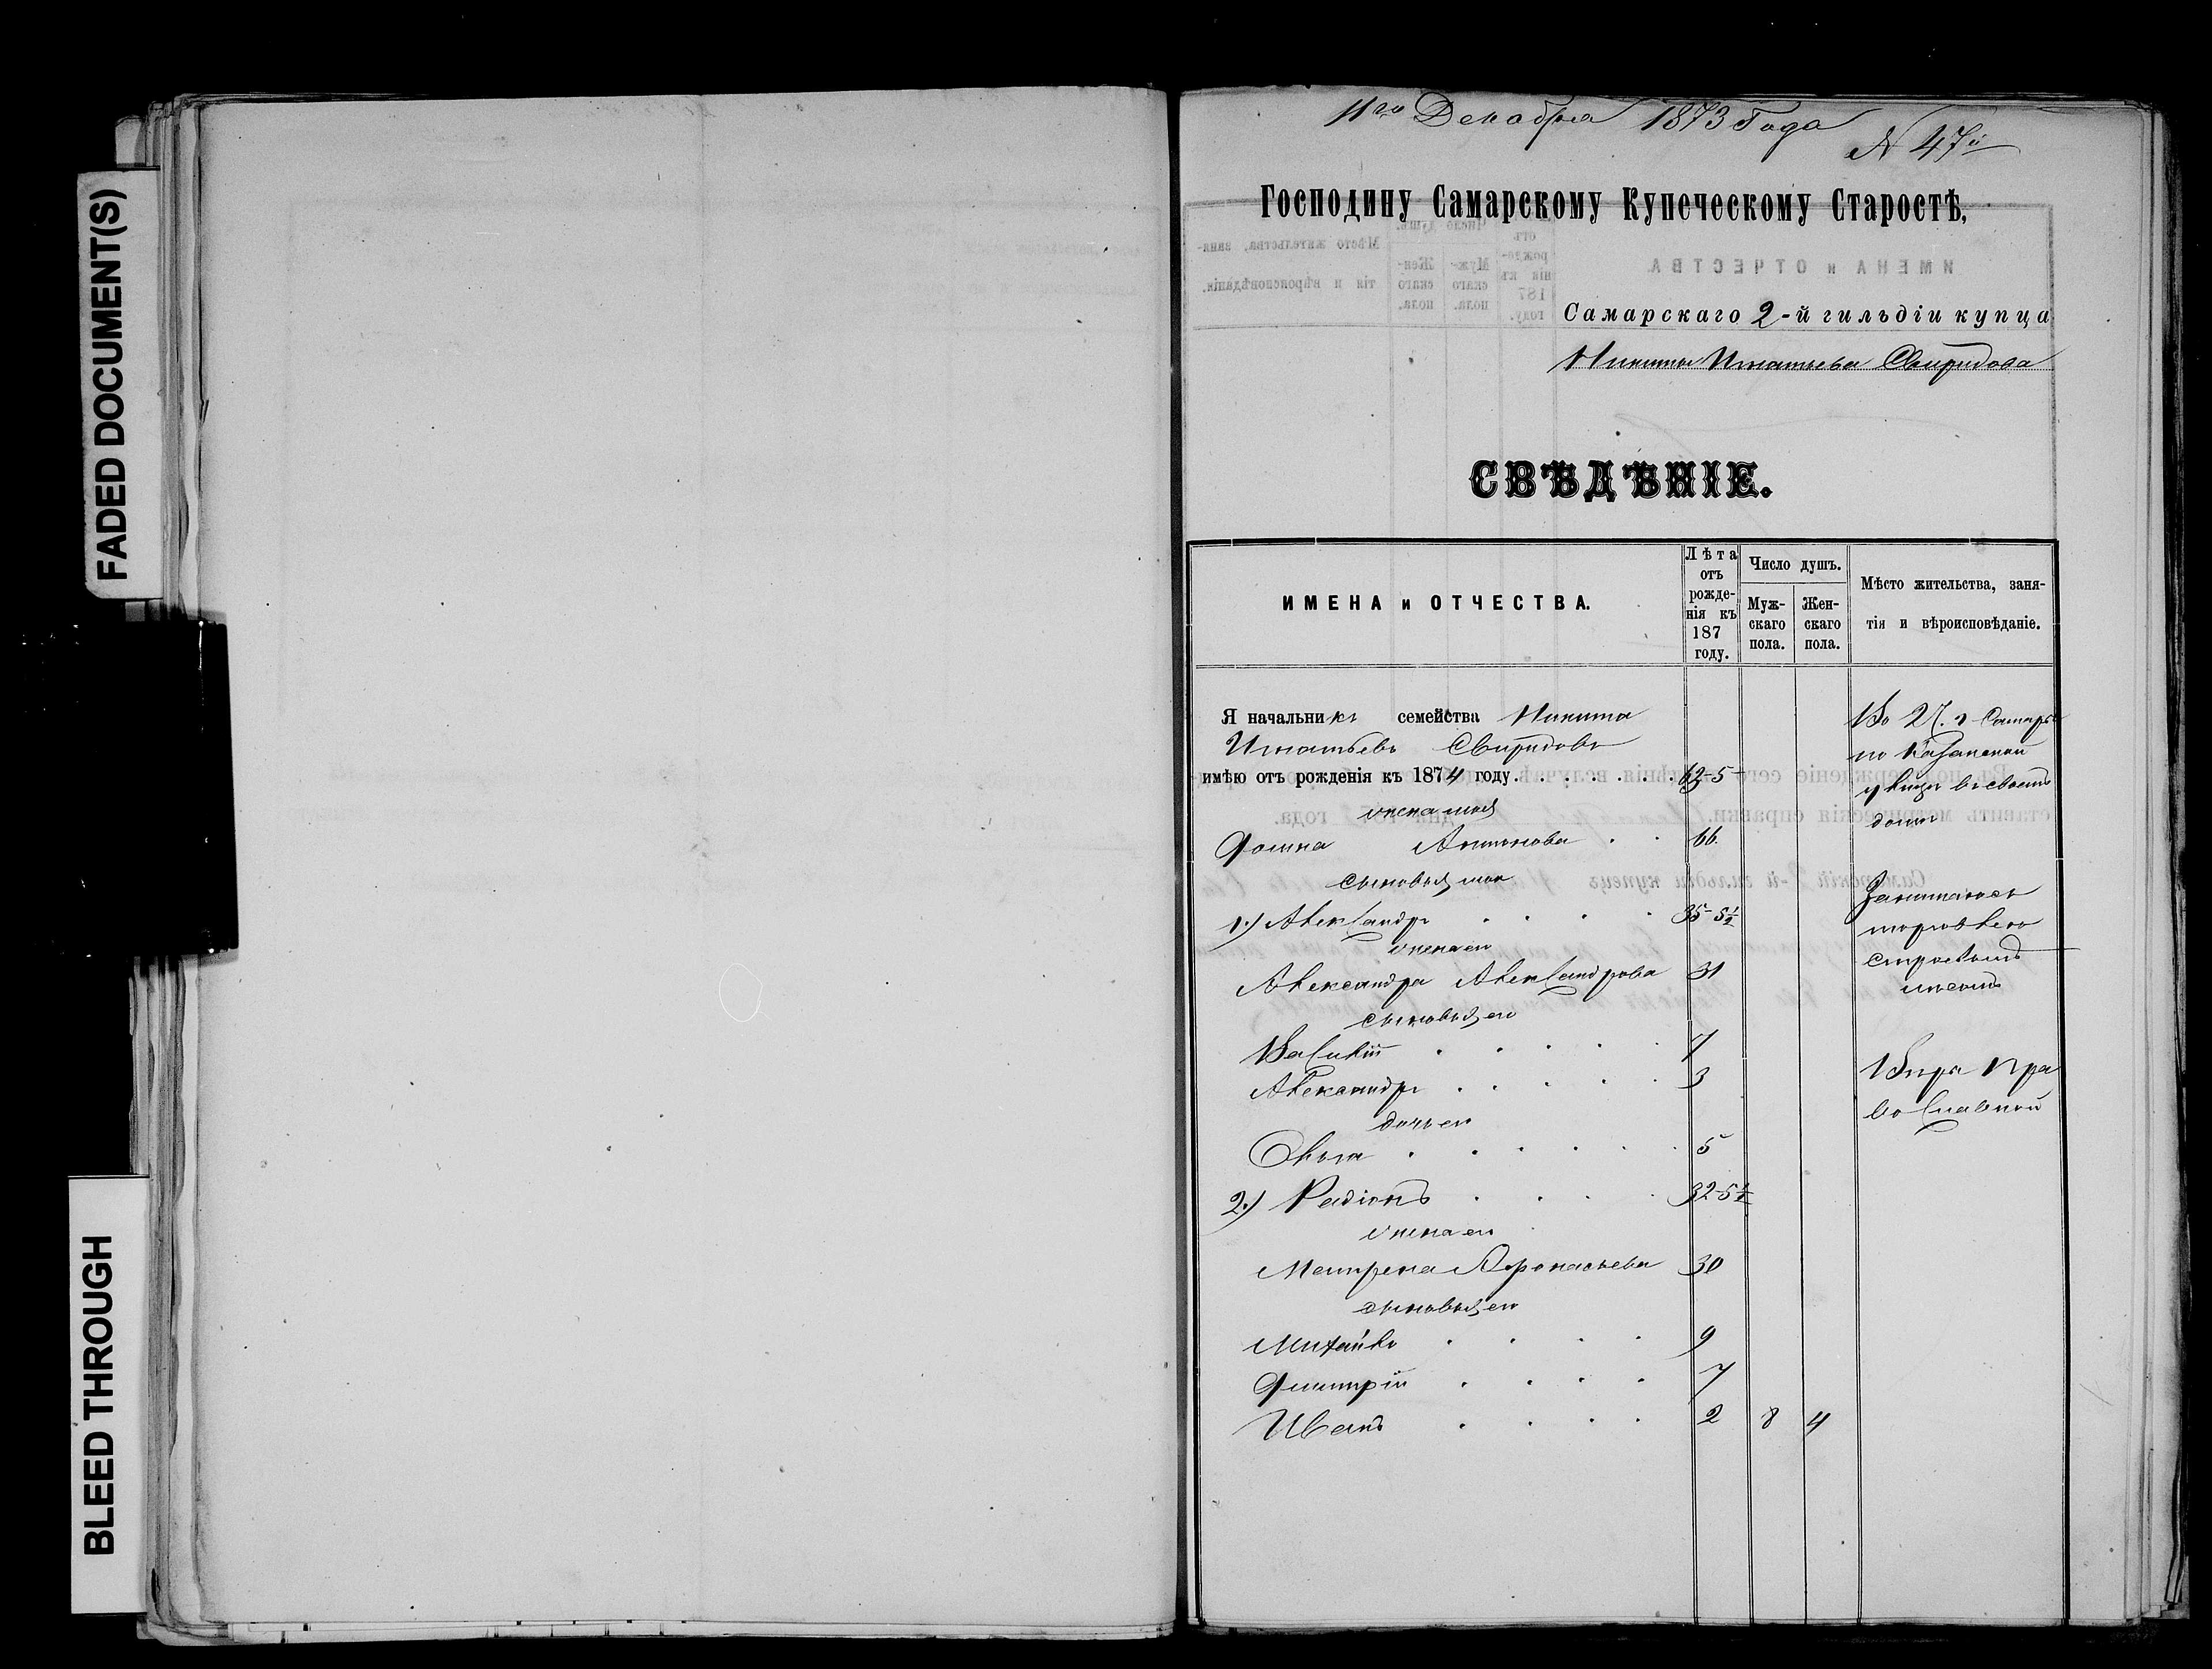 FADED DOCUMENT(S)
BLEED THROUGH
11го Декабря 1873 Года
N 47й
Господину Самарскому Купеческому Старостѣ,
Самарскаго 2-й гильдіи купца
Никиты Игнатьева Свиридова
СВѢДѢНІЕ.
ИМЕНА и ОТЧЕСТВА.
Лѣта отъ рожденія къ 187 году.
Число душъ.
Мужскаго пола.
Женскаго пола.
Мѣсто жительства, занятія и вѣроисповѣданіе.
Я начальникъ семейства Никита
Игнатьевъ Свиридовъ
имѣю отъ рожденія къ 1874 году. 62-5
жена моя
Домна Антонова 66.
сыновья мои
1.) Александръ 35-5½
жена ею
Александра Александрова 31
сыновья ею
Василій 7
Александръ 3
дочь ею
Ольга 5
2.) Радіонъ 32-5½
жена ею
Матрена Афонасьева 30
сыновья ею
Михайло 9
Дмитрій 7
Иванъ 2 8 4
Во 2Ч. г Самары
по Казанской
улицѣ въ своемъ
домѣ
Занимаюсь
торговлею
строевымъ
лѣсомъ
Вѣры Пра
вославной